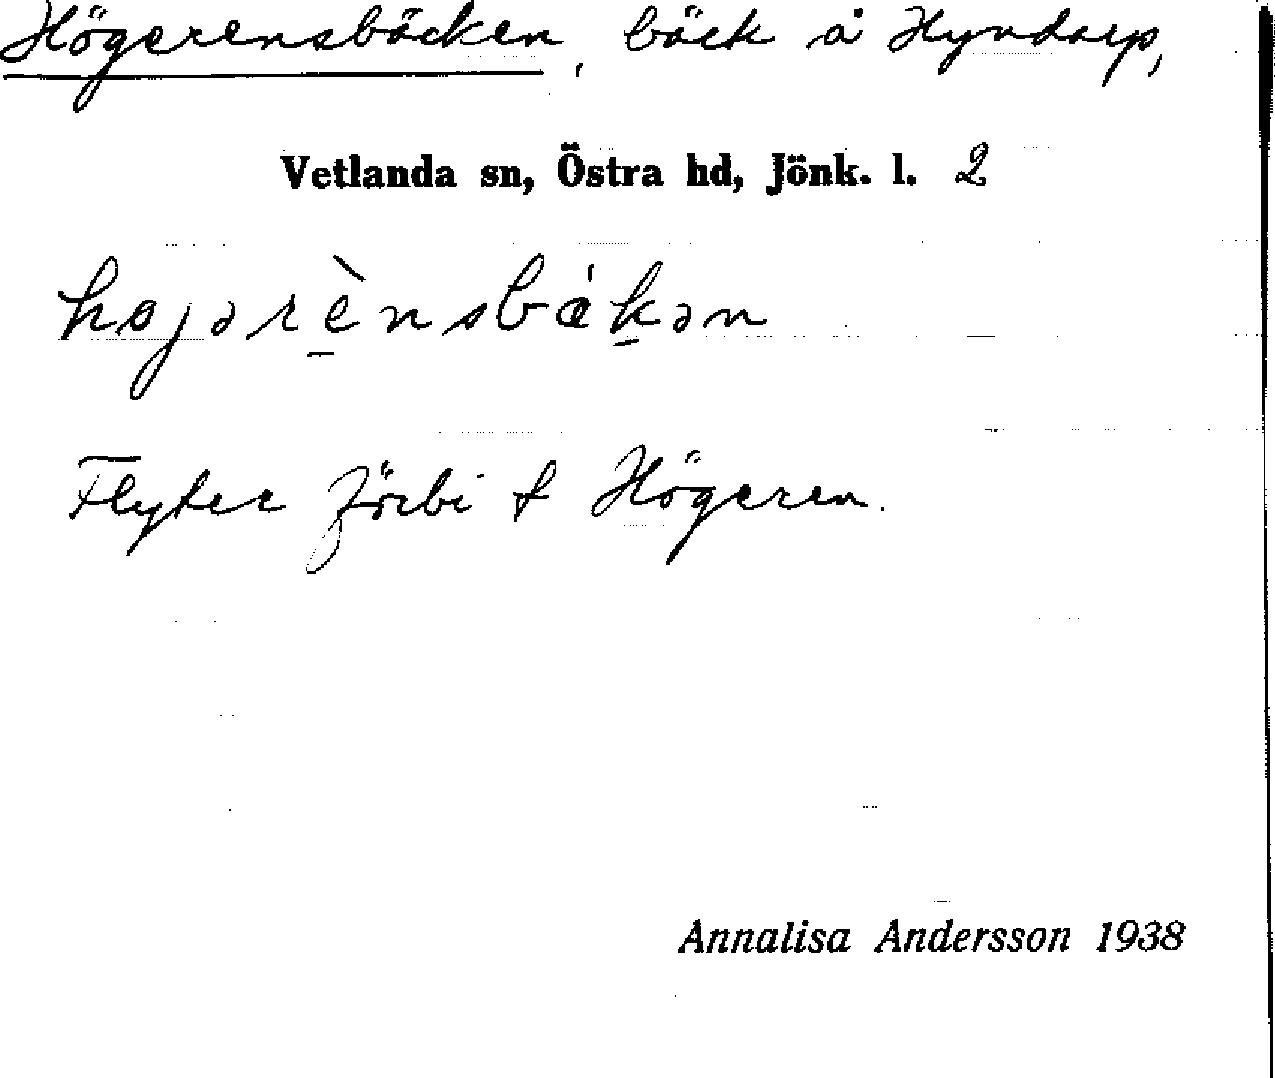 Högerensbäcken, bäck å Hyndarp,
Vetlanda sn, Östra hd, Jönk. l. 2
højərènsbækən
Flyter förbi t Högeren.
Annalisa Andersson 1938